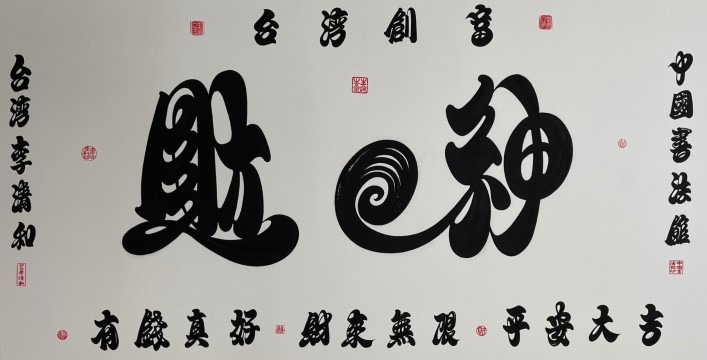 台湾創富
中國書法館
財神
台湾李和
有錢真好 財來無限 平安大吉